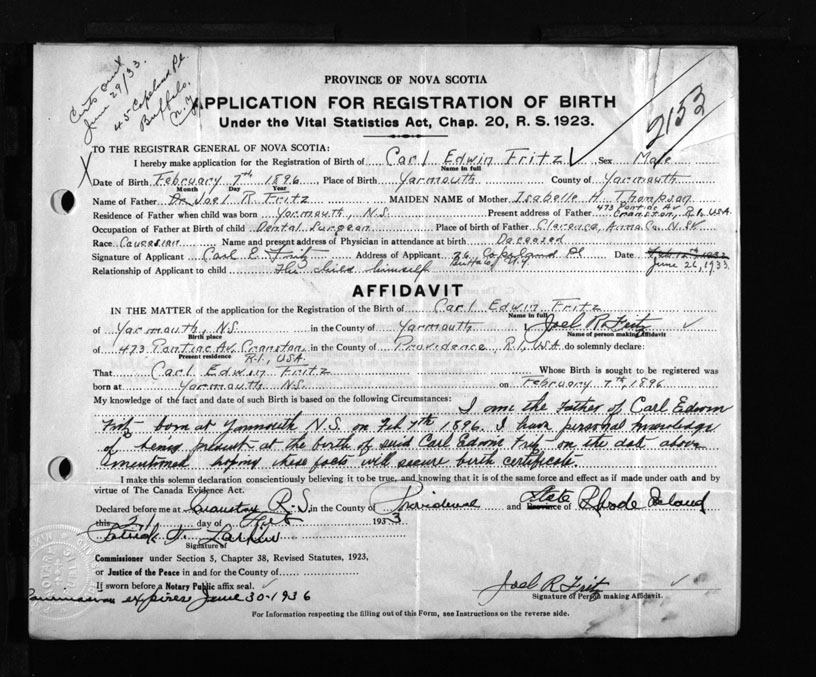 Certs out
June 29/33.
45 Copeland Pl.
Buffalo,
N.Y.
PROVINCE OF NOVA SCOTIA
APPLICATION FOR REGISTRATION OF BIRTH
Under the Vital Statistics Act, Chap. 20, R. S. 1923.
2153
TO THE REGISTRAR GENERAL OF NOVA SCOTIA:
I hereby make application for the Registration of Birth of Carl Edwin Fritz Sex Male
Name in full
Date of Birth February 7th 1896, Place of Birth Yarmouth County of Yarmouth
Month Day Year
Name of Father Dr. Joel R Fritz MAIDEN NAME of Mother Isabelle H. Thompson
Residence of Father when child was born Yarmouth, N.S. Present address of Father 473 Pontiac Av Cranston, R.I. USA.
Occupation of Father at Birth of child Dental Surgeon Place of birth of Father Clarence, Anna Co. N.S.
Race Caucasian Name and present address of Physician in attendance at birth Deceased
Signature of Applicant Carl E Fritz Address of Applicant Copeland Pl Buffalo, N.Y. Date June 26, 1933.
Relationship of Applicant to child The child himself
AFFIDAVIT
IN THE MATTER of the application for the Registration of the Birth of Carl Edwin Fritz
Name in full
of Yarmouth, N.S. in the County of Yarmouth I, Joel R. Fritz
Birth place Name of person making Affidavit
of 473 Pontiac Av, Cranston, R.I., USA in the County of Providence, R.I., USA do solemnly declare:
Present residence
That Carl Edwin Fritz Whose Birth is sought to be registered was
born at Yarmouth N.S. on February 7th, 1896
My knowledge of the fact and date of such Birth is based on the following Circumstances: I am the Father of Carl Edwin
Fritz born at Yarmouth N.S. on Feb 7th 1896. I have personal knowledge
of being present at the birth of said Carl Edwin Fritz on the date above
mentioned hoping these facts will secure birth certificate.
I make this solemn declaration conscientiously believing it to be true, and knowing that it is of the same force and effect as if made under oath and by
virtue of The Canada Evidence Act.
Declared before me at Cranston R.I. in the County of Providence and State Province of Rhode Island
this 21 day of Feb 1933
Patrick Larkin
Signature of
Commissioner under Section 5, Chapter 38, Revised Statutes, 1923,
or Justice of the Peace in and for the County of
If sworn before a Notary Public affix seal.
Commission expires June 30-1936
Joel R Fritz
Signature of Person making Affidavit.
For Information respecting the filling out of this Form, see Instructions on the reverse side.